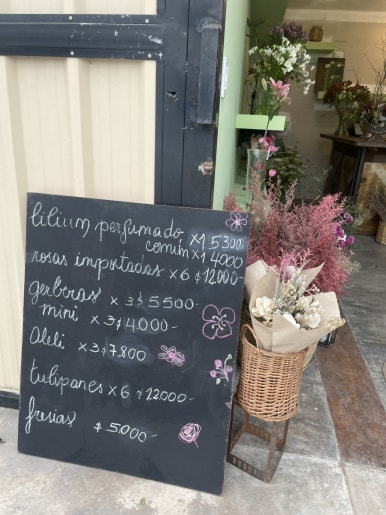 lilium perfumado x1 5300-
comun x1 4000-
rosas importadas x 6 $12000-
gerberas x 3 $5.500-
mini x 3 $4.000-
Aleli x 3 $7.800
tulipanes x 6 $12000-
fresias $5.000-